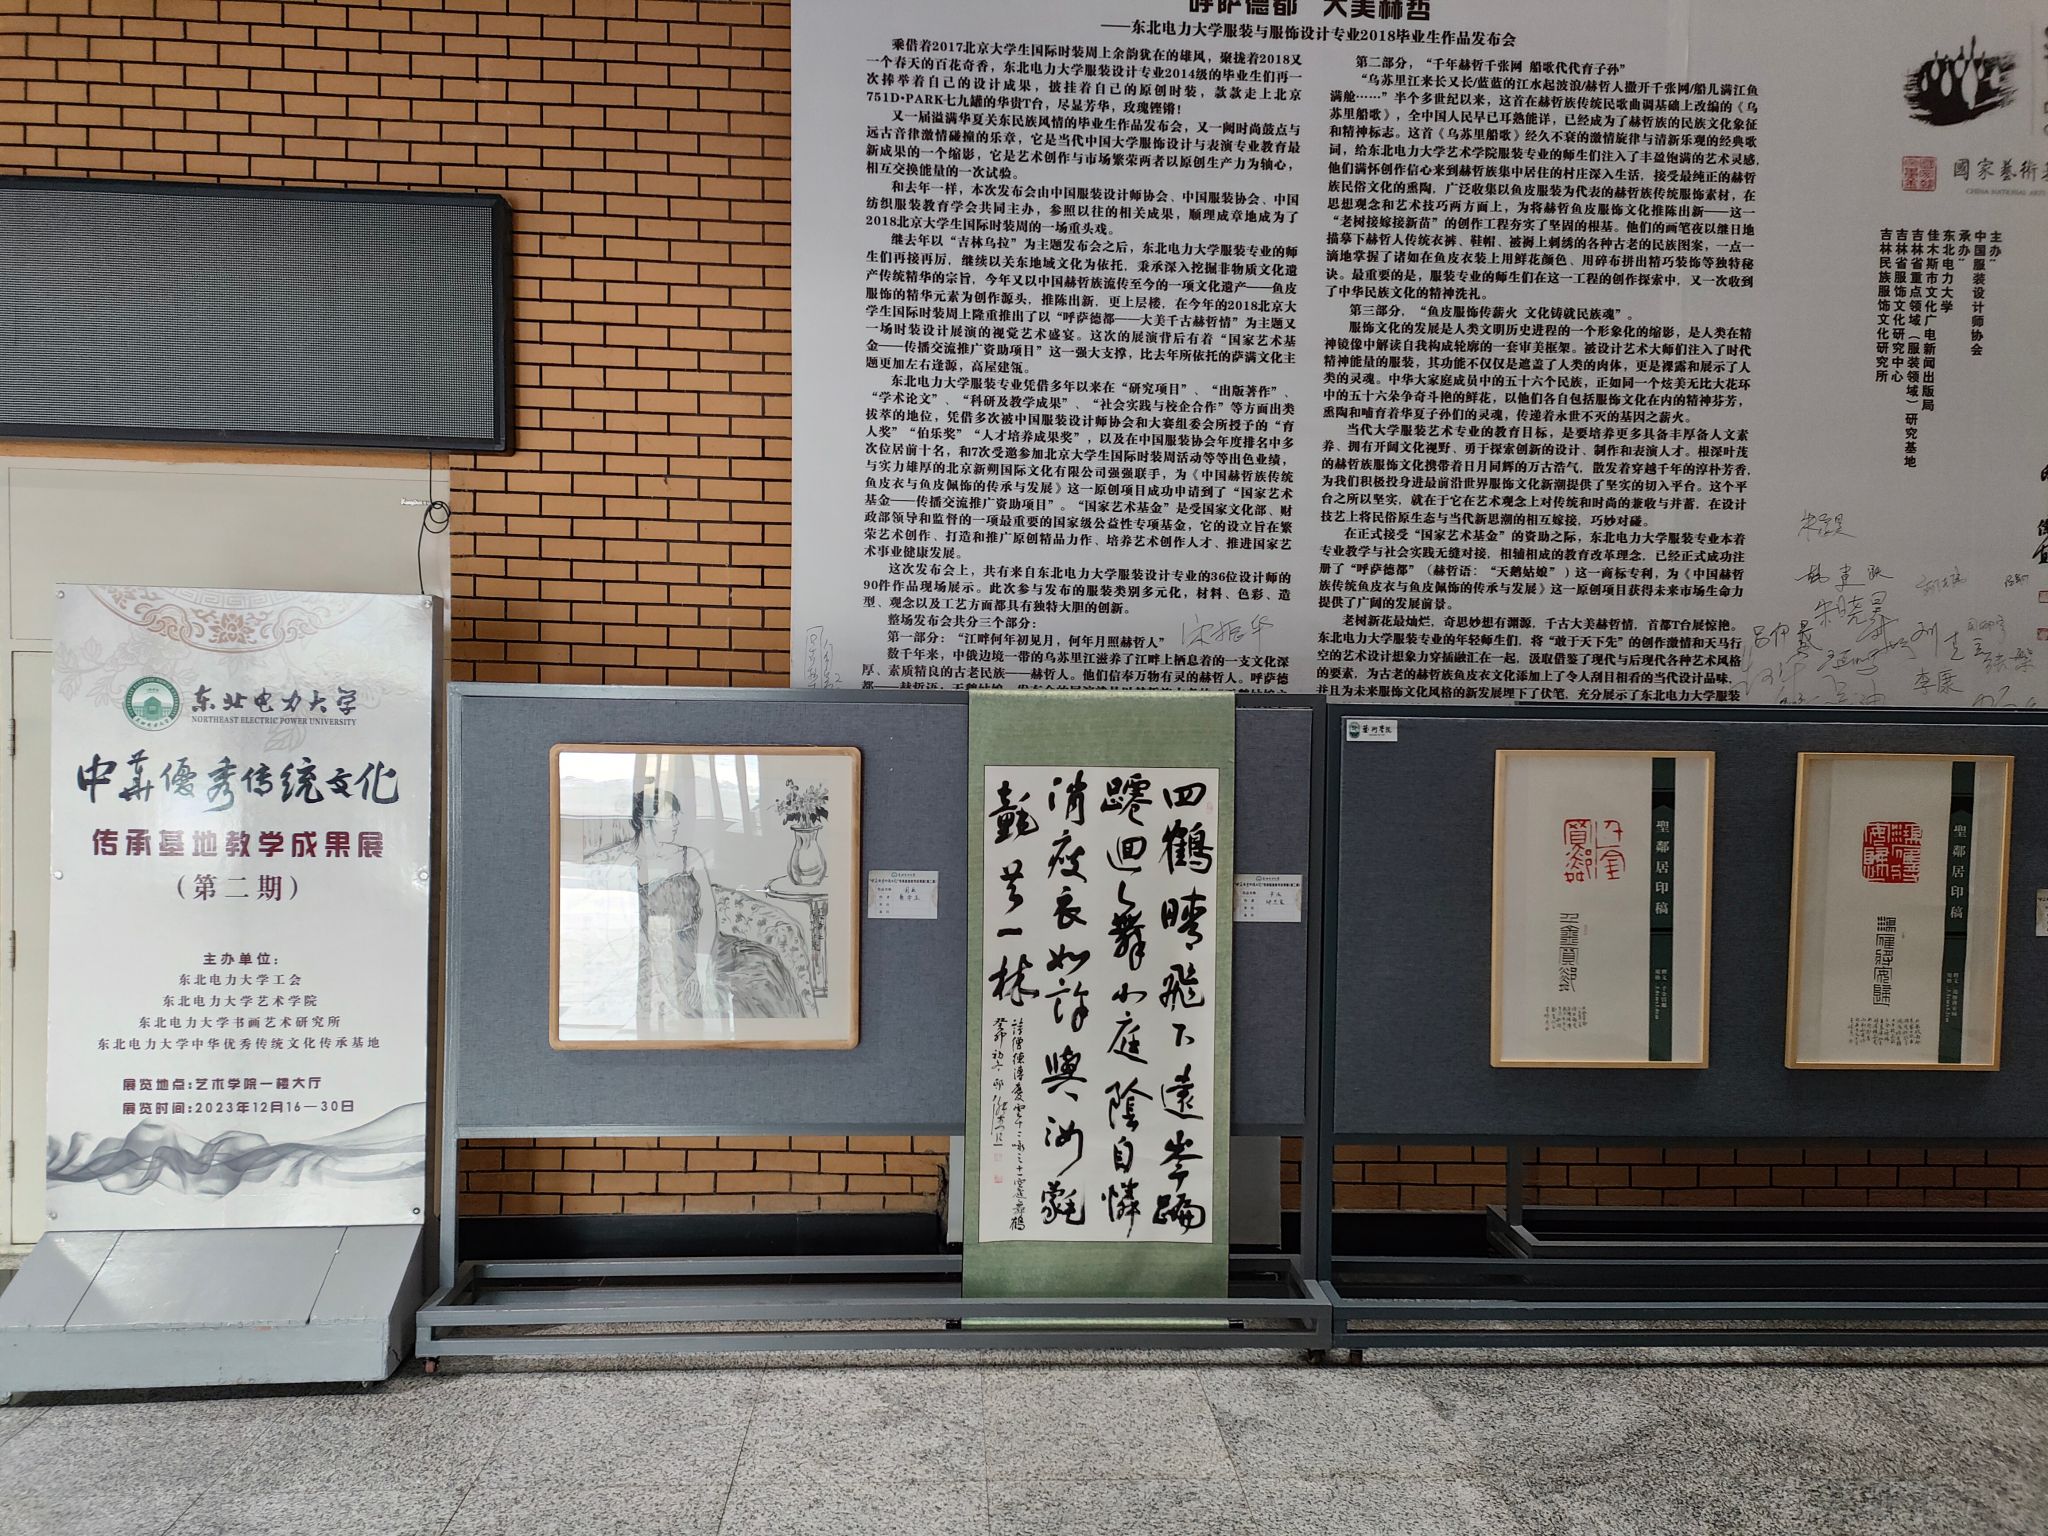 呼萨德都 大美赫哲
——东北电力大学服装与服饰设计专业2018毕业生作品发布会
乘借着2017北京大学生国际时装周上余韵犹在的雄风，聚拢着2018又
一个春天的百花奇香，东北电力大学服装设计专业2014级的毕业生们再一
次捧举着自己的设计成果，披挂着自己的原创时装，款款走上北京
751D·PARK七九罐的华贵T台，尽显芳华，玫瑰铿锵！
又一届溢满华夏关东民族风情的毕业生作品发布会，又一阙时尚鼓点与
远古音律激情碰撞的乐章，它是当代中国大学服饰设计与表演专业教育最
新成果的一个缩影，它是艺术创作与市场繁荣两者以原创生产力为轴心，
相互交换能量的一次试验。
和去年一样，本次发布会由中国服装设计师协会、中国服装协会、中国
纺织服装教育学会共同主办，参照以往的相关成果，顺理成章地成为了
2018北京大学生国际时装周的一场重头戏。
继去年以“吉林乌拉”为主题发布会之后，东北电力大学服装专业的师
生们再接再厉，继续以关东地域文化为依托，秉承深入挖掘非物质文化遗
产传统精华的宗旨，今年又以中国赫哲族流传至今的一项文化遗产——鱼皮
服饰的精华元素为创作源头，推陈出新，更上层楼，在今年的2018北京大
学生国际时装周上隆重推出了以“呼萨德都——大美千古赫哲情”为主题又
一场时装设计展演的视觉艺术盛宴。这次的展演背后有着“国家艺术基
金——传播交流推广资助项目”这一强大支撑，比去年所依托的萨满文化主
题更加左右逢源，高屋建瓴。
东北电力大学服装专业凭借多年以来在“研究项目”、“出版著作”、
“学术论文”、“科研及教学成果”、“社会实践与校企合作”等方面出类
拔萃的地位，凭借多次被中国服装设计师协会和大赛组委会所授予的“育
人奖”“伯乐奖”“人才培养成果奖”，以及在中国服装协会年度排名中多
次位居前十名，和7次受邀参加北京大学生国际时装周活动等等出色业绩，
与实力雄厚的北京新朔国际文化有限公司强强联手，为《中国赫哲族传统
鱼皮衣与鱼皮佩饰的传承与发展》这一原创项目成功申请到了“国家艺术
基金——传播交流推广资助项目”。“国家艺术基金”是受国家文化部、财
政部领导和监督的一项最重要的国家级公益性专项基金，它的设立旨在繁
荣艺术创作、打造和推广原创精品力作、培养艺术创作人才、推进国家艺
术事业健康发展。
这次发布会上，共有来自东北电力大学服装设计专业的36位设计师的
90件作品现场展示。此次参与发布的服装类别多元化，材料、色彩、造
型、观念以及工艺方面都具有独特大胆的创新。
整场发布会共分三个部分：
第一部分：“江畔何年初见月，何年月照赫哲人”
数千年来，中俄边境一带的乌苏里江滋养了江畔上栖息着的一支文化深
厚、素质精良的古老民族——赫哲人。他们信奉万物有灵的赫哲人。呼萨德
第二部分，“千年赫哲千张网 船歌代代育子孙”
“乌苏里江来长又长/蓝蓝的江水起波浪/赫哲人撒开千张网/船儿满江鱼
满舱……”半个多世纪以来，这首在赫哲族传统民歌曲调基础上改编的《乌
苏里船歌》，全中国人民早已耳熟能详，已经成为了赫哲族的民族文化象征
和精神标志。这首《乌苏里船歌》经久不衰的激情旋律与清新乐观的经典歌
词，给东北电力大学艺术学院服装专业的师生们注入了丰盈饱满的艺术灵感，
他们满怀创作信心来到赫哲族集中居住的村庄深入生活，接受最纯正的赫哲
族民俗文化的熏陶，广泛收集以鱼皮服装为代表的赫哲族传统服饰素材，在
思想观念和艺术技巧两方面上，为将赫哲鱼皮服饰文化推陈出新——这一
“老树接嫁接新苗”的创作工程夯实了坚固的根基。他们的画笔夜以继日地
描摹下赫哲人传统衣裤、鞋帽、被褥上刺绣的各种古老的民族图案，一点一
滴地掌握了诸如在鱼皮衣装上用鲜花颜色、用碎布拼出精巧装饰等独特秘
诀。最重要的是，服装专业的师生们在这一工程的创作探索中，又一次收到
了中华民族文化的精神洗礼。
第三部分，“鱼皮服饰传薪火 文化铸就民族魂”。
服饰文化的发展是人类文明历史进程的一个形象化的缩影，是人类在精
神镜像中解读自我构成轮廓的一套审美框架。被设计艺术大师们注入了时代
精神能量的服装，其功能不仅仅是遮盖了人类的肉体，更是裸露和展示了人
类的灵魂。中华大家庭成员中的五十六个民族，正如同一个炫美无比大花环
中的五十六朵争奇斗艳的鲜花，以他们各自包括服饰文化在内的精神芬芳，
熏陶和哺育着华夏子孙们的灵魂，传递着永世不灭的基因之薪火。
当代大学服装艺术专业的教育目标，是要培养更多具备丰厚备人文素
养、拥有开阔文化视野、勇于探索创新的设计、制作和表演人才。根深叶茂
的赫哲族服饰文化携带着日月同辉的万古浩气，散发着穿越千年的淳朴芳香，
为我们积极投身进最前沿世界服饰文化新潮提供了坚实的切入平台。这个平
台之所以坚实，就在于它在艺术观念上对传统和时尚的兼收与并蓄，在设计
技艺上将民俗原生态与当代新思潮的相互嫁接，巧妙对碰。
在正式接受“国家艺术基金”的资助之际，东北电力大学服装专业本着
专业教学与社会实践无缝对接，相辅相成的教育改革理念，已经正式成功注
册了“呼萨德都”（赫哲语：“天鹅姑娘”）这一商标专利，为《中国赫哲
族传统鱼皮衣与鱼皮佩饰的传承与发展》这一原创项目获得未来市场生命力
提供了广阔的发展前景。
老树新花最灿烂，奇思妙想有渊源，千古大美赫哲情，首都T台展惊艳。
东北电力大学服装专业的年轻师生们，将“敢于天下先”的创作激情和天马行
空的艺术设计想象力穿插融汇在一起，汲取借鉴了现代与后现代各种艺术风格
的要素，为古老的赫哲族鱼皮衣文化添加上了令人刮目相看的当代设计品味，
并且为未来服饰文化风格的新发展埋下了伏笔，充分展示了东北电力大学服装
國家藝術
CHINA NATIONAL ARTS
主办：
中国服装设计师协会
承办：
东北电力大学
佳木斯市文化广电新闻出版局
吉林省重点领域（服装领域）研究基地
吉林省服饰文化研究中心
吉林民族服饰文化研究所
宋振华
朱晓昊
李康
东北电力大学
NORTHEAST ELECTRIC POWER UNIVERSITY
中华優秀传统文化
传承基地教学成果展
（第二期）
主办单位：
东北电力大学工会
东北电力大学艺术学院
东北电力大学书画艺术研究所
东北电力大学中华优秀传统文化传承基地
展览地点:艺术学院一楼大厅
展览时间:2023年12月16—30日
四鶴晴飛下遠岑蹁
躚迴舞小庭陰自憐
消瘦衣如許與汝氋
氃共一林
藝術學院
聖鄰居印稿
聖鄰居印稿